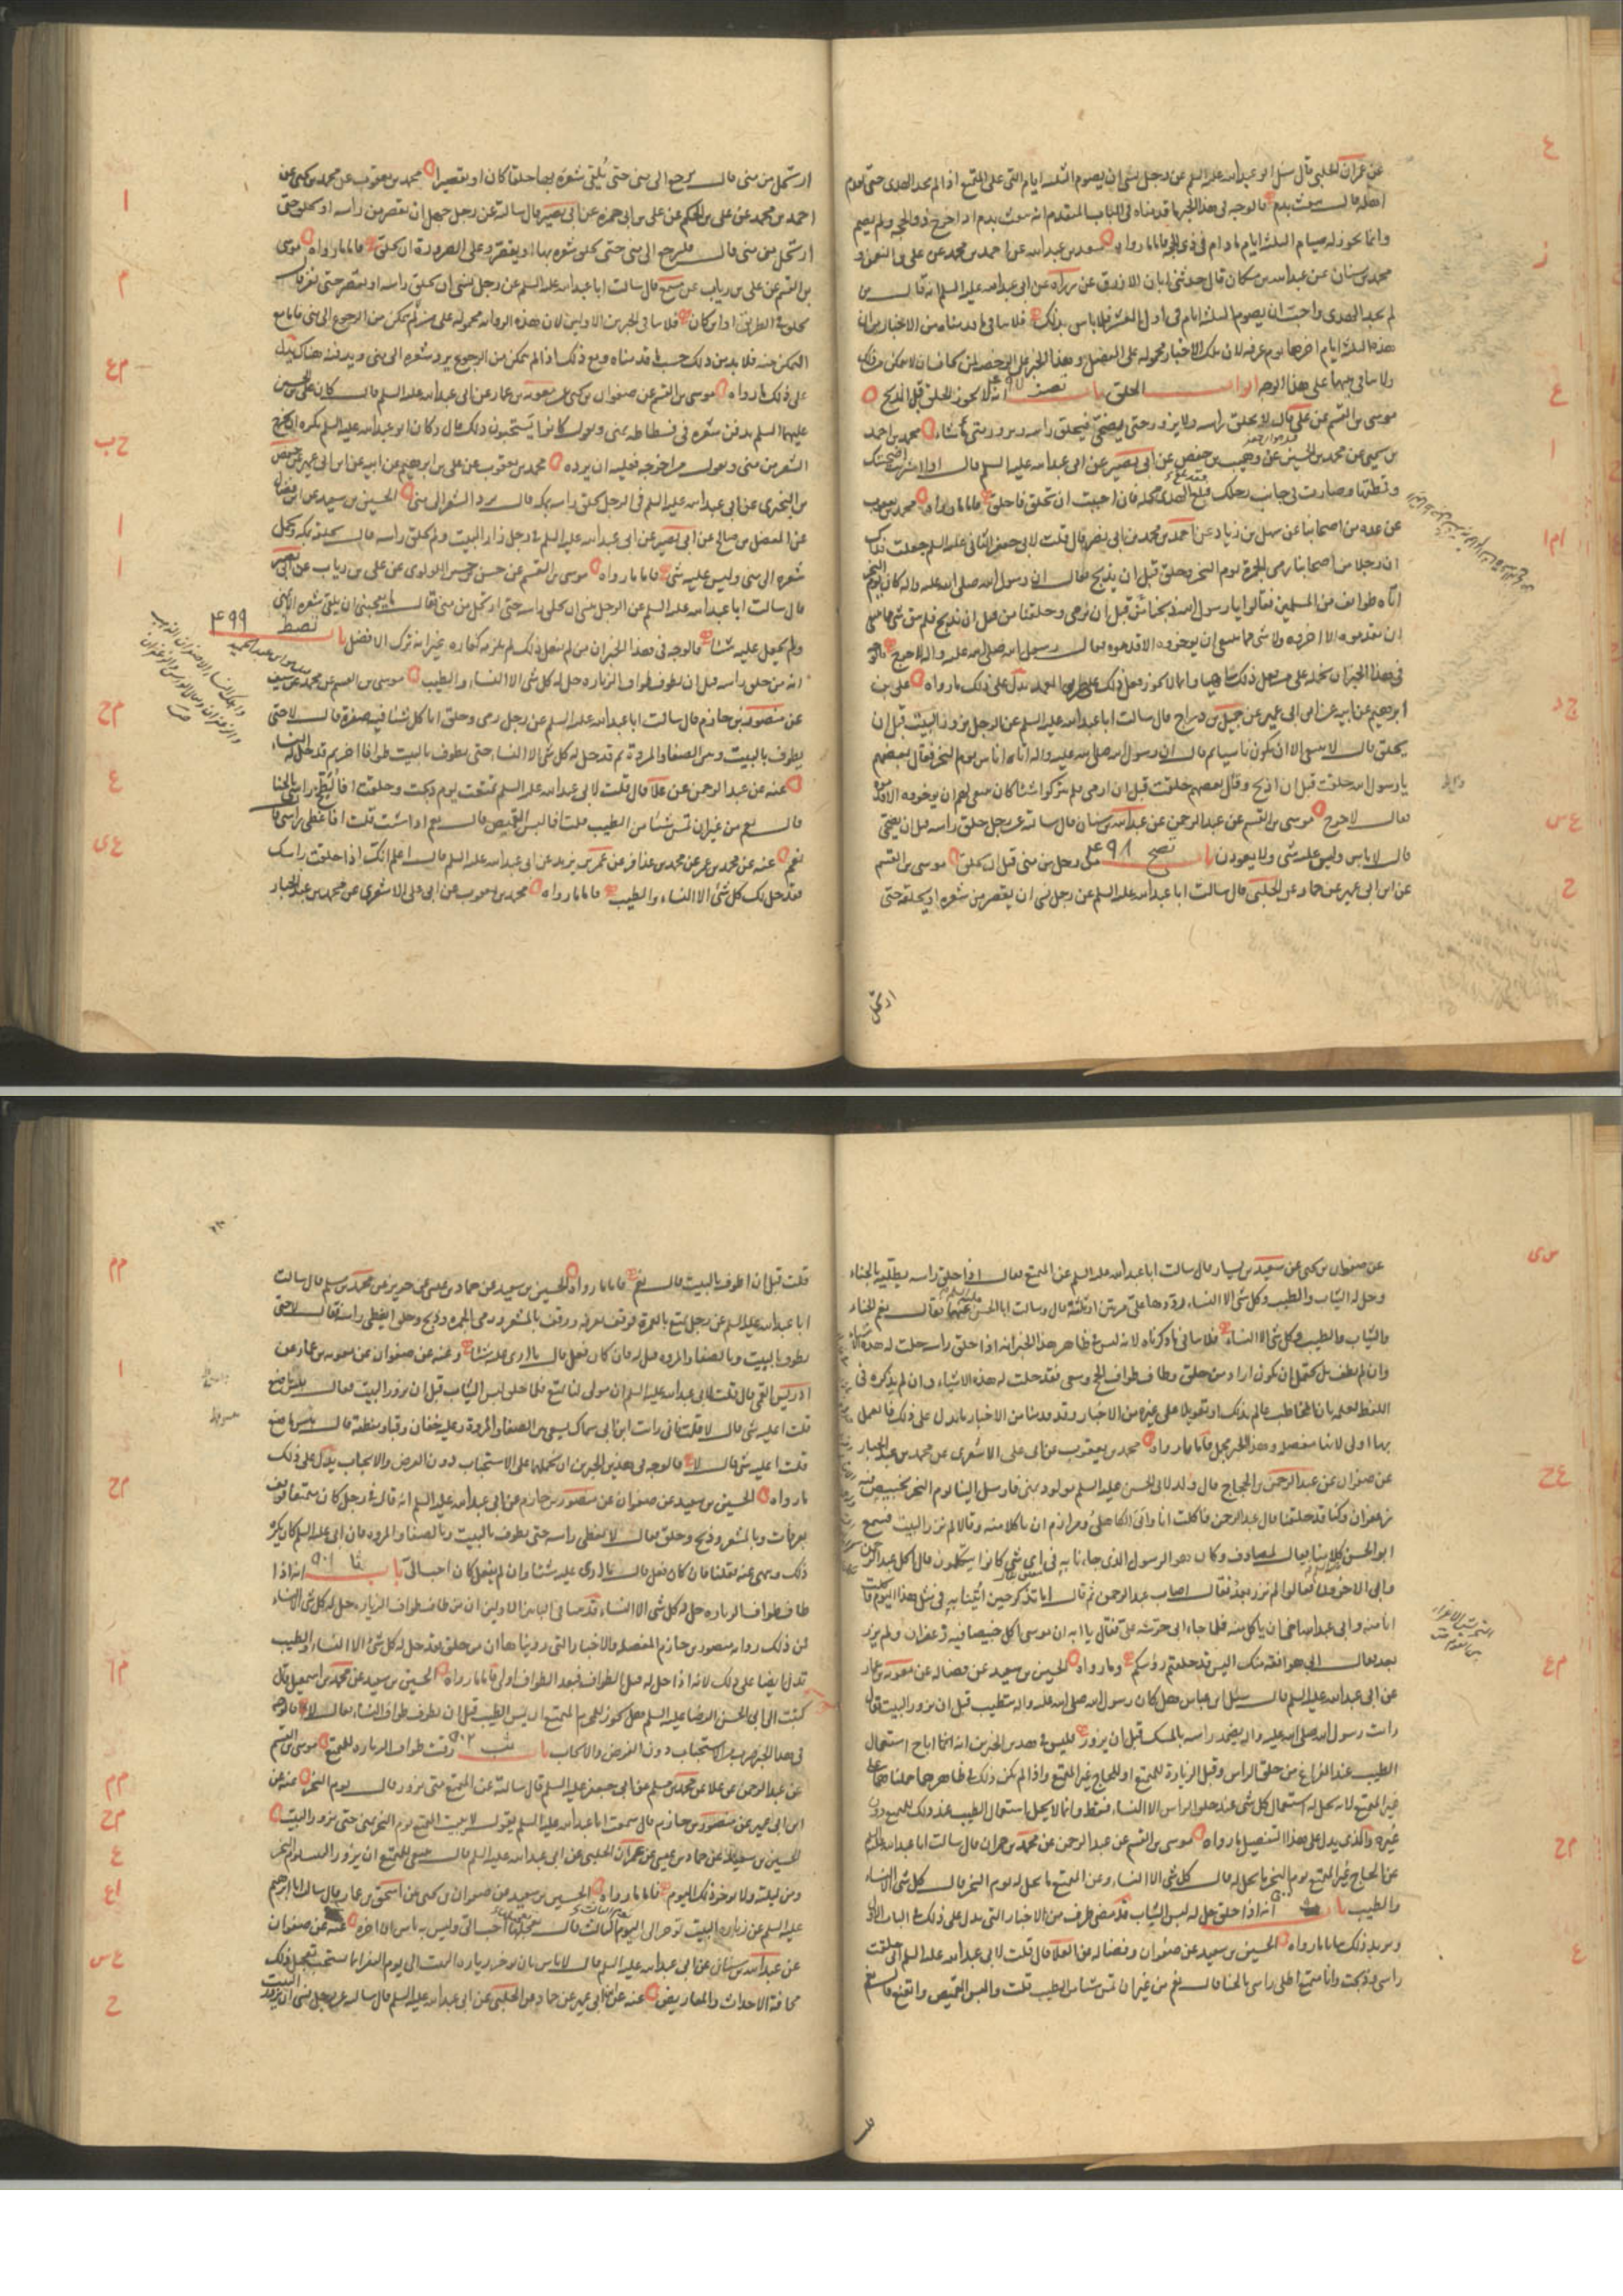 عن عمران الحلبي قال سئل ابو عبد الله عليه السلم عن رجل نسى ان يصوم الثلثه ايام التى على المتمتع اذا لم يجد الهدى حتى يقدم
اهله قال يبعث بدم فالوجه فى هذا الخبر ما قدمناه فى الباب المتقدم انه يبعث بدم اذا خرج ذو الحجه ولم يصم
وانما يجوز له صيام الثلثه ايام ما دام فى ذى الحجه فاما ما رواه سعد بن عبد الله عن احمد بن محمد عن على بن النعمن و
محمد بن سنان عن عبد الله بن مسكان قال حدثنى ابان الازرق عن زراره عن ابى عبد الله عليه السلم انه قال من
لم يجد الهدى واحب ان يصوم الثلثه ايام فى اول العشر فلا باس بذلك فلا ينافى ما قدمناه من الاخبار من ان
هذه الثلثه ايام اخرها يوم عرفه لان تلك الاخبار محموله على الفضل وهذا الخبر على الرخصه لمن يخاف ان لا يمكن من ذلك
ولا تنافى بينهما على هذا الوجه ابواب الحلق باب تصز ٤٩٧ انه لا يجوز الحلق قبل الذبح
موسى بن القسم عن على قال لا يحلق راسه ولا يزور حتى يضحى فيحلق راسه ويزور متى ما شاء محمد بن احمد
بن يحيى عن محمد بن الحسين عن وهيب بن حفص عن ابى بصير عن ابى عبد الله عليه السلم قال اذا اشتريت اضحيتك
وقمطتها وصارت فى جانب رحلك فقد بلغ الهدى محله فان احببت ان تحلق فاحلق فاما ما رواه محمد بن يعقوب
عن عده من اصحابنا عن سهل بن زياد عن احمد بن محمد بن ابى نصر قال قلت لابى جعفر الثانى عليه السلم جعلت فداك
ان رجلا من اصحابنا رمى الجمرة يوم النحر وحلق قبل ان يذبح فقال ان رسول الله صلى الله عليه واله كان يوم النحر
اتاه طوائف من المسلمين فقالوا يا رسول الله ذبحنا من قبل ان نرمى وحلقنا من قبل ان نذبح فلم يبق شى مما ينبغى
ان يقدموه الا اخروه ولا شى مما ينبغى ان يوخروه الا قدموه فقال رسول الله صلى الله عليه واله لا حرج فالوجه
فى هذا الخبر ان نحمله على من فعل ذلك ناسيا وانما لا يجوز فعل ذلك على طريق العمد يدل على ذلك ما رواه على بن
ابرهيم عن ابيه عن ابن ابى عمير عن جميل بن دراج قال سالت ابا عبد الله عليه السلم عن الرجل يزور البيت قبل ان
يحلق قال لا ينبغى الا ان يكون ناسيا ثم قال ان رسول الله صلى الله عليه واله اتاه اناس يوم النحر فقال بعضهم
يا رسول الله حلقت قبل ان اذبح وقال بعضهم حلقت قبل ان ارمى فلم يتركوا شيئا كان ينبغى لهم ان يوخروه الا قدموه
فقال لا حرج موسى بن القسم عن عبد الرحمن عن عبد الله بن سنان قال سالته عن رجل حلق راسه قبل ان يضحى
قال لا باس وليس عليه شى ولا يعودن باب تصح ٤٩٨ من رحل من منى قبل ان يحلق موسى بن القسم
عن ابن ابى عمير عن حماد عن الحلبى قال سالت ابا عبد الله عليه السلم عن رجل نسى ان يقصر من شعره او يحلقه حتى
ارتحل
ارتحل من منى قال يرجع الى منى حتى يلقى شعره بها حلقا كان او تقصيرا محمد بن يعقوب عن محمد بن يحيى عن
احمد بن محمد عن على بن الحكم عن على بن ابى حمزه عن ابى بصير قال سالته عن رجل جهل ان يقصر من راسه او يحلق حتى
ارتحل من منى قال فليرجع الى منى حتى يحلق شعره بها او يقصر وعلى الصرورة ان يحلق فاما ما رواه موسى
بن القسم عن على بن رياب عن مسمع قال سالت ابا عبد الله عليه السلم عن رجل نسى ان يحلق راسه او يقصر حتى نفر قال
يحلق فى الطريق او اين كان فلا ينافى الخبرين الاولين لان هذه الروايه محموله على من لم يتمكن من الرجوع الى منى فاما مع
التمكن منه فلا بد من ذلك حسب ما قدمناه ومع ذلك اذا لم يتمكن من الرجوع يرد شعره الى منى ويدفنه هناك يدل
على ذلك ما رواه موسى بن القسم عن صفوان بن يحيى عن معويه بن عمار عن ابى عبد الله عليه السلم قال كان على بن الحسين
عليهما السلم يدفن شعره فى فسطاطه بمنى ويقول كانوا يستحبون ذلك قال وكان ابو عبد الله عليه السلم يكره ان يخرج
الشعر من منى ويقول من اخرجه فعليه ان يرده محمد بن يعقوب عن على بن ابرهيم عن ابيه عن ابن ابى عمير عن حفص
بن البخترى عن ابى عبد الله عليه السلم فى الرجل يحلق راسه بمكه قال يرد الشعر الى منى الحسين بن سعيد عن ابن فضال
عن المفضل بن صالح عن ابى بصير عن ابى عبد الله عليه السلم فى رجل زار البيت ولم يحلق راسه قال يحلقه بمكه ويحمل
شعره الى منى وليس عليه شى فاما ما رواه موسى بن القسم عن حسن بن حسين اللولوى عن على بن رياب عن ابى بصير
قال سالت ابا عبد الله عليه السلم عن الرجل ينسى ان يحلق راسه حتى ارتحل من منى فقال ما يعجبنى ان يلقى شعره الا بمنى
ولم يجعل عليه شيئا فالوجه فى هذا الخبر ان من لم يفعل ذلك لم يلزمه كفاره غير انه ترك الافضل باب تصط ٤٩٩
انه من حلق راسه قبل ان يطوف طواف الزياره حل له كل شى الا النساء والطيب موسى بن القسم عن محمد عن سيف
عن منصور بن حازم قال سالت ابا عبد الله عليه السلم عن رجل رمى وحلق اياكل شيئا فيه صفرة قال لا حتى
يطوف بالبيت وبين الصفا والمروة ثم قد حل له كل شى الا النساء حتى يطوف بالبيت طوافا اخر ثم قد حل له النساء
عنه عن عبد الرحمن عن علا قال قلت لابى عبد الله عليه السلم تمتعت يوم ذبحت وحلقت افالطخ راسى بالحنا
قال نعم من غير ان تمس شيئا من الطيب قلت افالبس القميص قال نعم اذا شئت قلت افاغطى راسى قال
نعم عنه عن محمد بن عمر عن محمد بن عذافر عن عمر بن يزيد عن ابى عبد الله عليه السلم قال اعلم انك اذا حلقت راسك
فقد حل لك كل شى الا النساء والطيب فاما ما رواه محمد بن يعقوب عن ابى على الاشعرى عن محمد بن عبد الجبار
عن صفوان بن يحيى عن سعيد بن يسار قال سالت ابا عبد الله عليه السلم عن المتمتع فقال اذا حلق راسه يطليه بالحناء
وحل له الثياب والطيب وكل شى الا النساء رددها على مرتين او ثلثه قال وسالت ابا الحسن عنها فقال نعم الحناء
والثياب والطيب وكل شى الا النساء فلا ينافى ما ذكرناه لانه ليس فى ظاهر هذا الخبر انه اذا حلق راسه حلت له هذه الاشياء
وان لم يطف بل يحتمل ان يكون اراد من حلق وطاف طواف الحج وسعى فقد حلت له هذه الاشياء وان لم يذكره فى
اللفظ لعلمه بان المخاطب عالم بذلك او تعويلا على غيره من الاخبار وقد قدمنا من الاخبار ما يدل على ذلك فالعمل
بها اولى لانها مفصله وهذا الخبر مجمل فاما ما رواه محمد بن يعقوب عن ابى على الاشعرى عن محمد بن عبد الجبار
عن صفوان عن عبد الرحمن بن الحجاج قال ولد لابى الحسن عليه السلم مولود بمنى فارسل الينا يوم النحر بخبيص فيه
زعفران وكنا قد حلقنا قال عبد الرحمن فاكلت انا وابى الكاهلى ومرازم ان ياكلا منه وقالا لم نزر البيت فسمع
ابو الحسن كلامنا فقال لمصادف وكان هو الرسول الذى جاءنا به فى اى شى كانوا يتكلمون قال اكل عبد الرحمن
وابى الاخران فقالا لم نزر بعد فقال اصاب عبد الرحمن ثم قال اما تذكر حين اتينا به فى مثل هذا اليوم فاكلت
انا منه وابى عبد الله اخى ان ياكل منه فلما جاء ابى حرشه على فقال يا ابه ان موسى اكل خبيصا فيه زعفران ولم يزر
بعد فقال ابى هو افقه منك اليس قد حلقتم رؤسكم وما رواه الحسين بن سعيد عن فضاله عن معويه بن عمار
عن ابى عبد الله عليه السلم قال سئل ابن عباس هل كان رسول الله صلى الله عليه واله يتطيب قبل ان يزور البيت قال
رايت رسول الله صلى الله عليه واله يضمد راسه بالمسك قبل ان يزور فليس فى هذين الخبرين انه انما اباح استعمال
الطيب عند الفراغ من حلق الراس وقبل الزيارة للمتمتع او للحاج غير المتمتع واذا لم يكن ذلك فى ظاهرهما حملناهما على
غير المتمتع لانه يحل له استعمال كل شى عند حلق الراس الا النساء فقط وانما لا يحل استعمال الطيب عند ذلك للمتمتع دون
غيره والذى يدل على هذا التفصيل ما رواه موسى بن القسم عن عبد الرحمن عن محمد بن حمران قال سالت ابا عبد الله عليه السلم
عن الحاج غير المتمتع يوم النحر ما يحل له قال كل شى الا النساء وعن المتمتع ما يحل له يوم النحر قال كل شى الا النساء
والطيب باب انه اذا حلق حل له لبس الثياب قد مضى طرف من الاخبار التى تدل على ذلك فى الباب الاول
ويزيد ذلك بيانا ما رواه الحسين بن سعيد عن صفوان وفضاله عن العلا قال قلت لابى عبد الله عليه السلم انى حلقت
راسى وذبحت وانا متمتع اطلى راسى بالحنا قال نعم من غير ان تمس شيئا من الطيب قلت والبس القميص واتقنع قال نعم
قلت
قلت قبل ان اطوف بالبيت قال نعم فاما ما رواه الحسين بن سعيد عن حماد بن عيسى عن حريز عن محمد بن مسلم قال سالت
ابا عبد الله عليه السلم عن رجل تمتع بالعمرة فوقف بعرفه ووقف بالمشعر ورمى الجمره وذبح وحلق ايغطى راسه فقال لا حتى
يطوف بالبيت وبالصفا والمروه قيل له فان كان فعل قال ما ارى عليه شيئا وعنه عن صفوان عن معويه بن عمار عن
ادريس القمى قال قلت لابى عبد الله عليه السلم ان مولى لنا تمتع فلما حلق لبس الثياب قبل ان يزور البيت فقال بئس ما صنع
قلت اعليه شى قال لا قلت فانى رايت ابن ابى سماك يسعى بين الصفا والمروة وعليه خفان وقبا ومنطقة فقال بئس ما صنع
قلت اعليه شى قال لا فالوجه فى هذين الخبرين ان نحملهما على الاستحباب دون الفرض والايجاب يدل على ذلك
ما رواه الحسين بن سعيد عن صفوان عن منصور بن حازم عن ابى عبد الله عليه السلم انه قال فى رجل كان متمتعا فوقف
بعرفات وبالمشعر وذبح وحلق فقال لا يغطى راسه حتى يطوف بالبيت وبالصفا والمروه فان ابى عليه السلم كان يكره
ذلك وينهى عنه فقلنا فان كان فعل قال ما ارى عليه شيئا وان لم يفعل كان احب الى باب ثا ٥٠١ انه اذا
طاف طواف الزياره حل له كل شى الا النساء قد مضى فى الباب الاولين ان من طاف طواف الزياره حل له كل شى الا النساء
لان ذلك رواه منصور بن حازم المفصله والاخبار التى رويناها ان من حلق فقد حل له كل شى الا النساء والطيب
تدل ايضا على ذلك لانه اذا حل له قبل الطواف فبعد الطواف اولى فاما ما رواه الحسين بن سعيد عن محمد بن اسمعيل قال
كتبت الى ابى الحسن الرضا عليه السلم هل يجوز للمحرم المتمتع ان يمس الطيب قبل ان يطوف طواف النساء فقال لا فالوجه
فى هذا الخبر ضرب من الاستحباب دون الفرض والايجاب باب ثب ٥٠٢ وقت طواف الزياره للمتمتع موسى بن القسم
عن عبد الرحمن عن علا عن محمد بن مسلم عن ابى جعفر عليه السلم قال سالته عن المتمتع متى يزور قال يوم النحر عنه عن
ابن ابى عمير عن منصور بن حازم قال سمعت ابا عبد الله عليه السلم يقول لا يبيت المتمتع يوم النحر بمنى حتى يزور البيت
الحسين بن سعيد عن حماد بن عيسى عن عمران الحلبى عن ابى عبد الله عليه السلم قال ينبغى للمتمتع ان يزور البيت يوم النحر
ومن ليلته ولا يوخر ذلك اليوم فاما ما رواه الحسين بن سعيد عن صفوان بن يحيى عن اسحق بن عمار قال سالت ابا ابرهيم
عليه السلم عن زيارة البيت توخر الى اليوم الثالث قال تعجيلها احب الى وليس به باس ان اخره عنه عن صفوان
عن عبد الله بن سنان عن ابى عبد الله عليه السلم قال لا باس بان يوخر زياره البيت الى يوم النفر انما يستحب تعجيل ذلك
مخافة الاحداث والمعاريض عنه عن ابن ابى عمير عن حماد عن الحلبى عن ابى عبد الله عليه السلم قال سالته عن رجل نسى ان يزور البيت